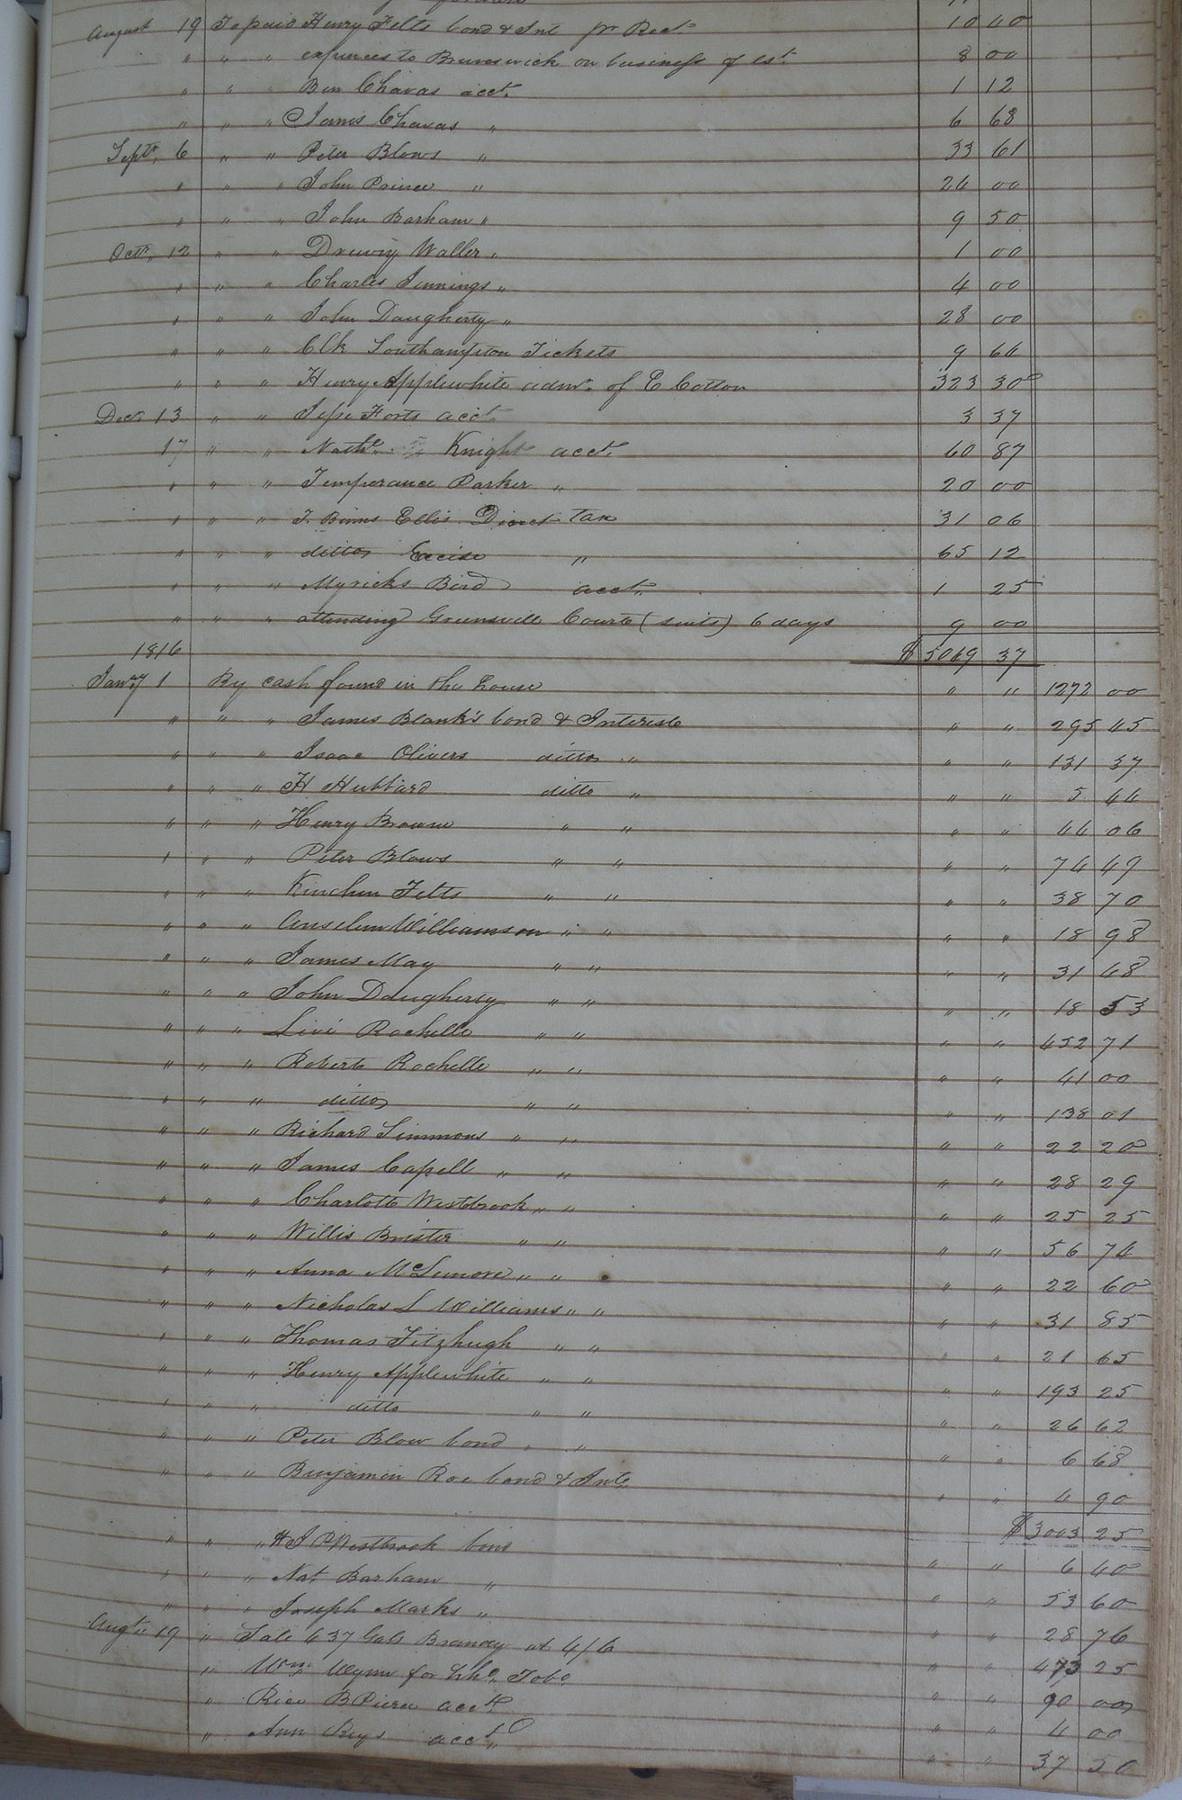 August 19 To paid Henry Felts bond & Int pr Rect. 10 40
" " " expences to Brunswick on business of est. 8 00
" " " Ben Chavas acct. 1 12
" " " James Chavas " 6 68
Septr. 6 " " Peter Blows " 33 61
" " " John Prince " 24 00
" " " John Barham " 9 50
Octr. 12 " " Drewry Waller " 1 00
" " " Charles Jennings " 4 00
" " " John Daugherty " 28 00
" " " Clk Southampton Tickets 9 64
" " " Henry Applewhite admr. of E Cotton 323 30
Decr. 13 " " Jesse Forts acct 3 37
17 " " Nathl. Knight acct. 60 87
" " " Temperance Parker " 20 00
" " " T. Binns Ellis Direct tax 31 06
" " " ditto Excise " 65 12
" " " Myricks Bird acct. 1 25
" " " attending Greensville Courte (suits) 6 days 9 00
1816 $ 5069 37
Jany 1 By cash found in the house " " 1272 00
" " " James Blank's bond & Intereste " " 295 45
" " " Isaac Olivers ditto " " " 131 37
" " " H Hubbard ditto " " " 5 44
" " " Henry Browne " " " " 44 06
" " " Peter Blows " " " " 74 49
" " " Kinchen Felts " " " " 38 70
" " " Anselm Williamson " " " " 18 98
" " " James May " " " " 31 68
" " " John Daugherty " " " " 18 53
" " " Livi Rochelle " " " " 452 71
" " " Roberte Rochelle " " " " 41 00
" " " ditto " " " " 138 01
" " " Richard Simmons " " " " 22 20
" " " James Capell " " " " 28 29
" " " Charlotte Westbrook " " " " 25 25
" " " Willis Brister " " " " 56 74
" " " Anna McLemore " " " " 22 60
" " " Nicholas L Williams " " " " 31 85
" " " Thomas Fitzhugh " " " " 21 65
" " " Henry Applewhite " " " " 193 25
" " " ditto " " " " 26 62
" " " Peter Blow bond " " " " 6 68
" " " Benjamin Roe bond & Inte. " " 4 90
$ 3003 25
" " " Westbrook bond " " 6 40
" " " Nat Barham " " " 53 60
" " " Joseph Marks " " " 28 76
Augt. 19 " Sale 437 Gals Brandy at 4/6 " " 473 25
" Wm. Wynn for hhd. Tobo. " " 90 00
" Rice B Pierce acct. " " 4 00
" Ann acct. " " 37 50